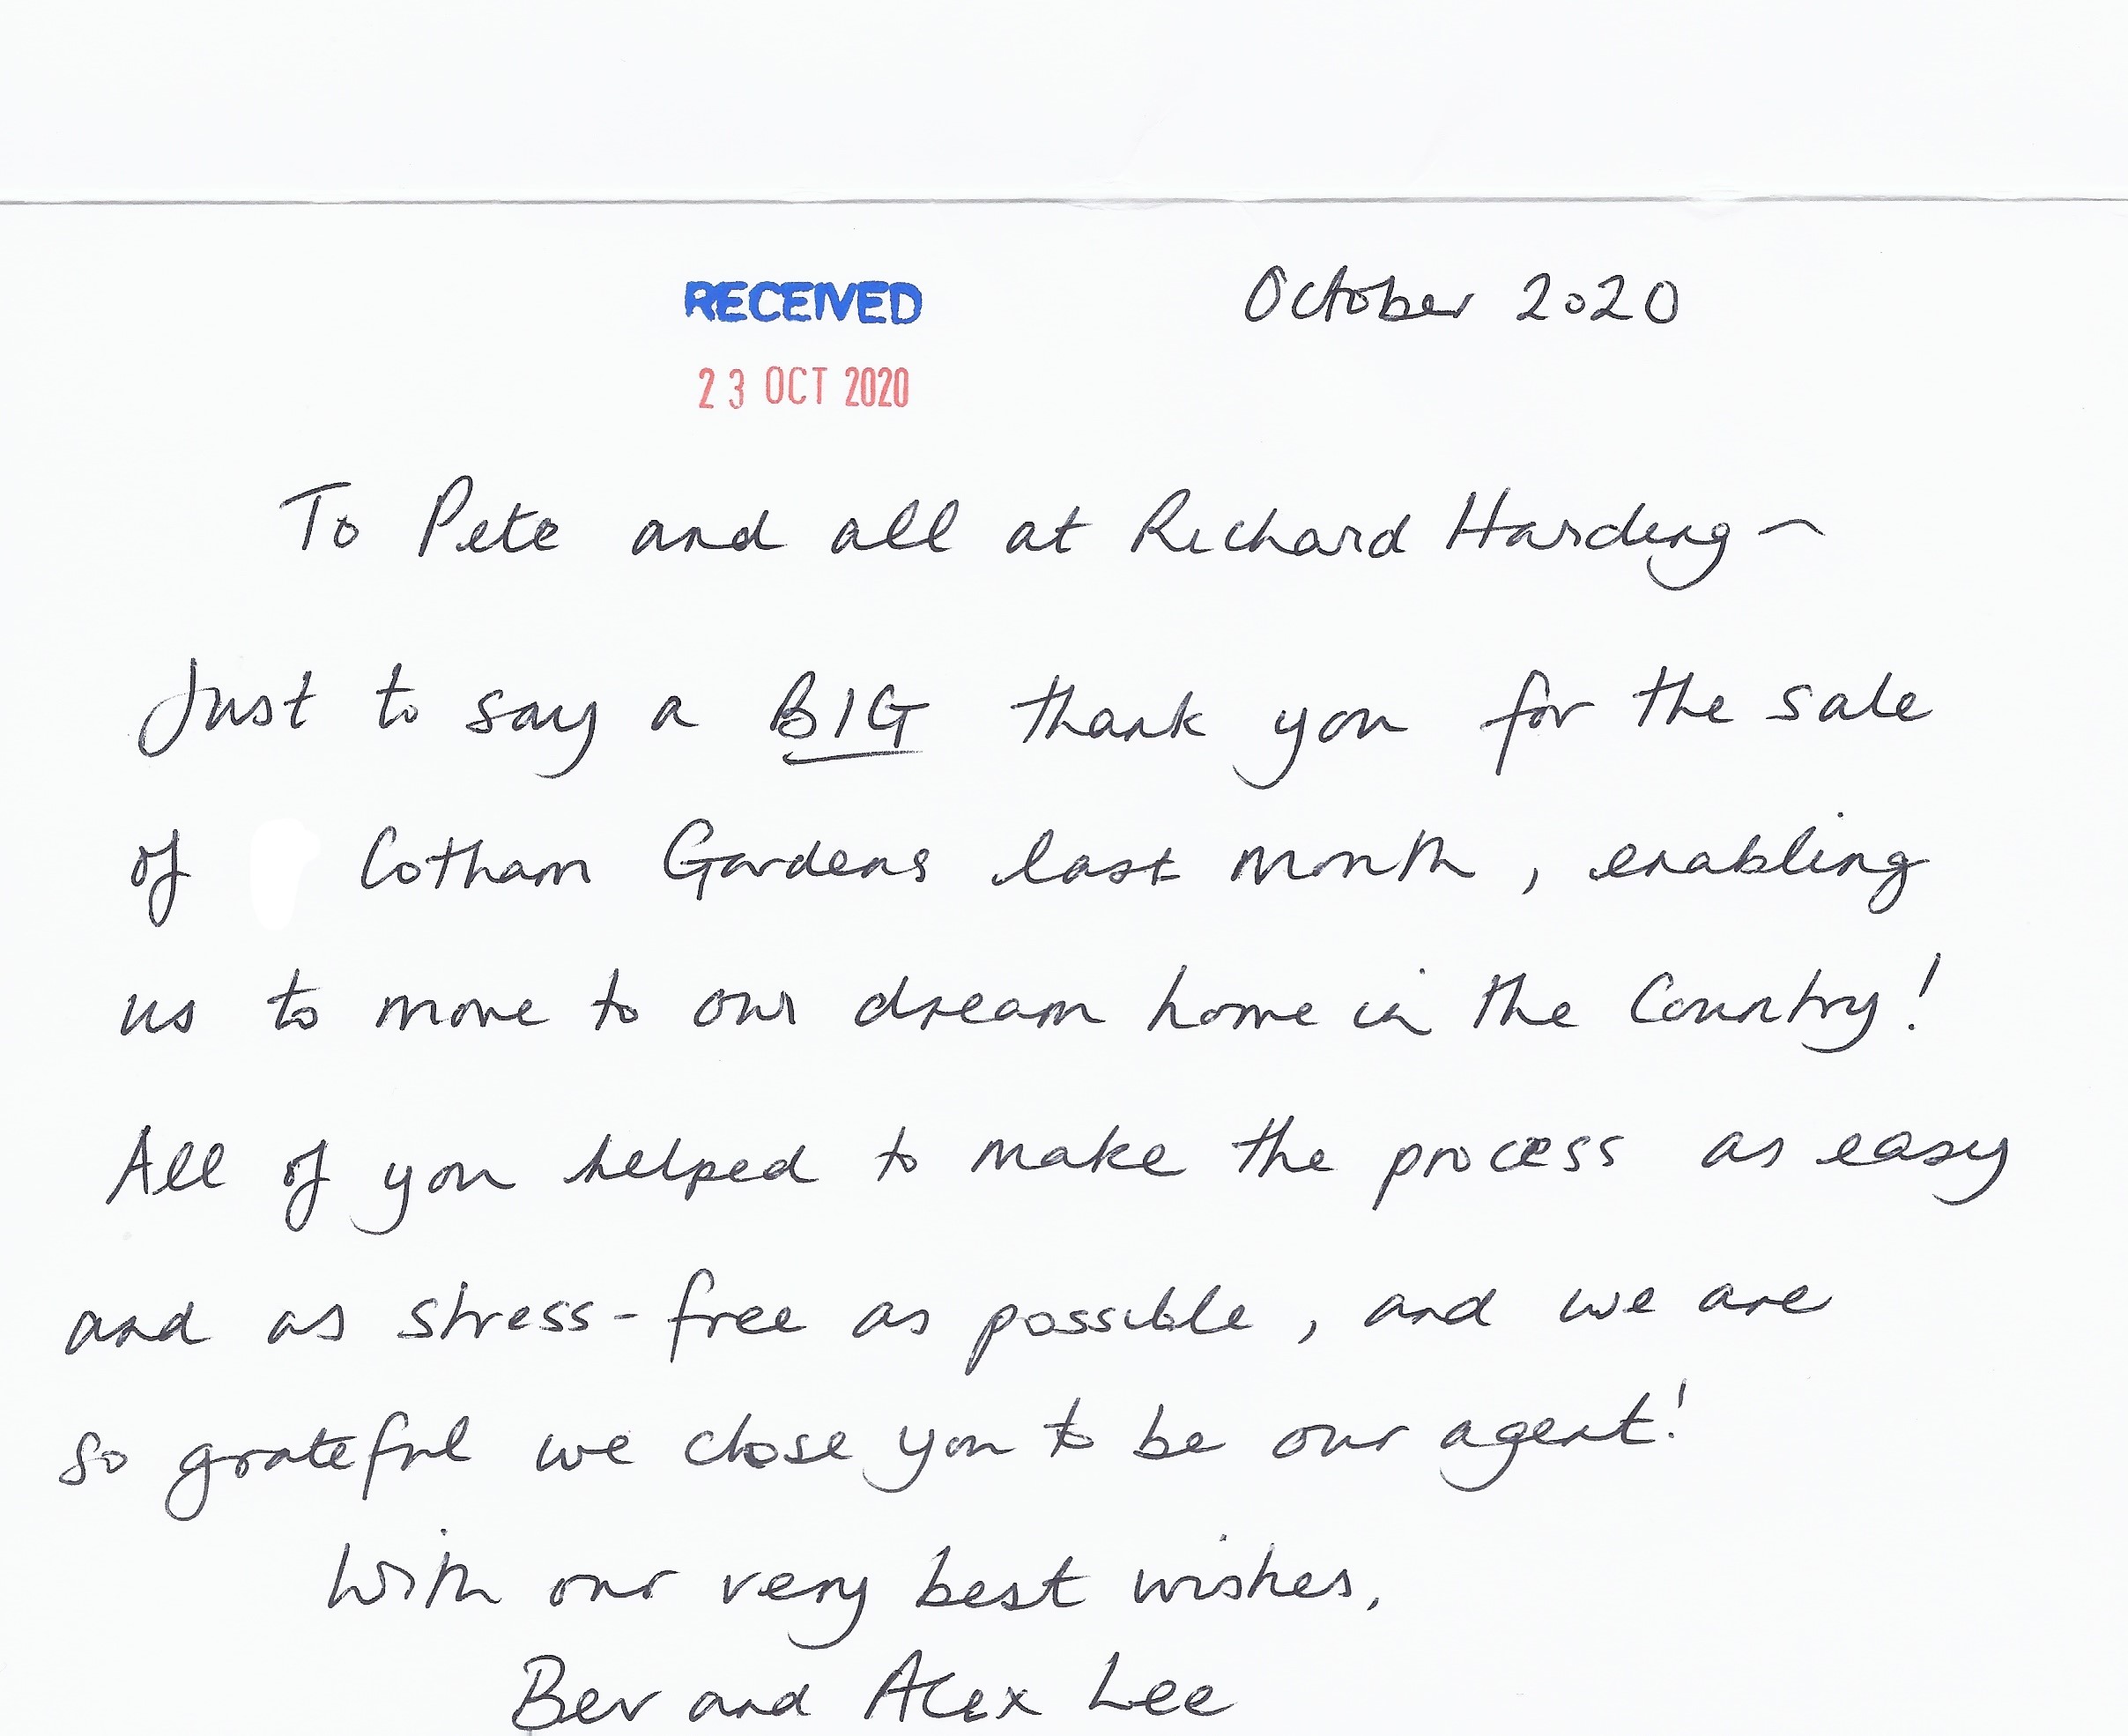 RECEIVED October 2020
23 OCT 2020
To Pete and all at Richard Harding ~
Just to say a BIG thank you for the sale
of Cotham Gardens last month, enabling
us to move to our dream home in the Country!
All of you helped to make the process as easy
and as stress-free as possible, and we are
so grateful we chose you to be our agent!
With our very best wishes,
Bev and Alex Lee